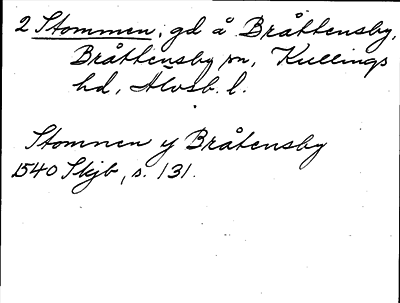 2 Stommen, gd å Bråttensby,
Bråttensby sn, Kullings
hd, Älvsb. l.
Stomnen y Bråtensby
1540 Skjb, s. 131.